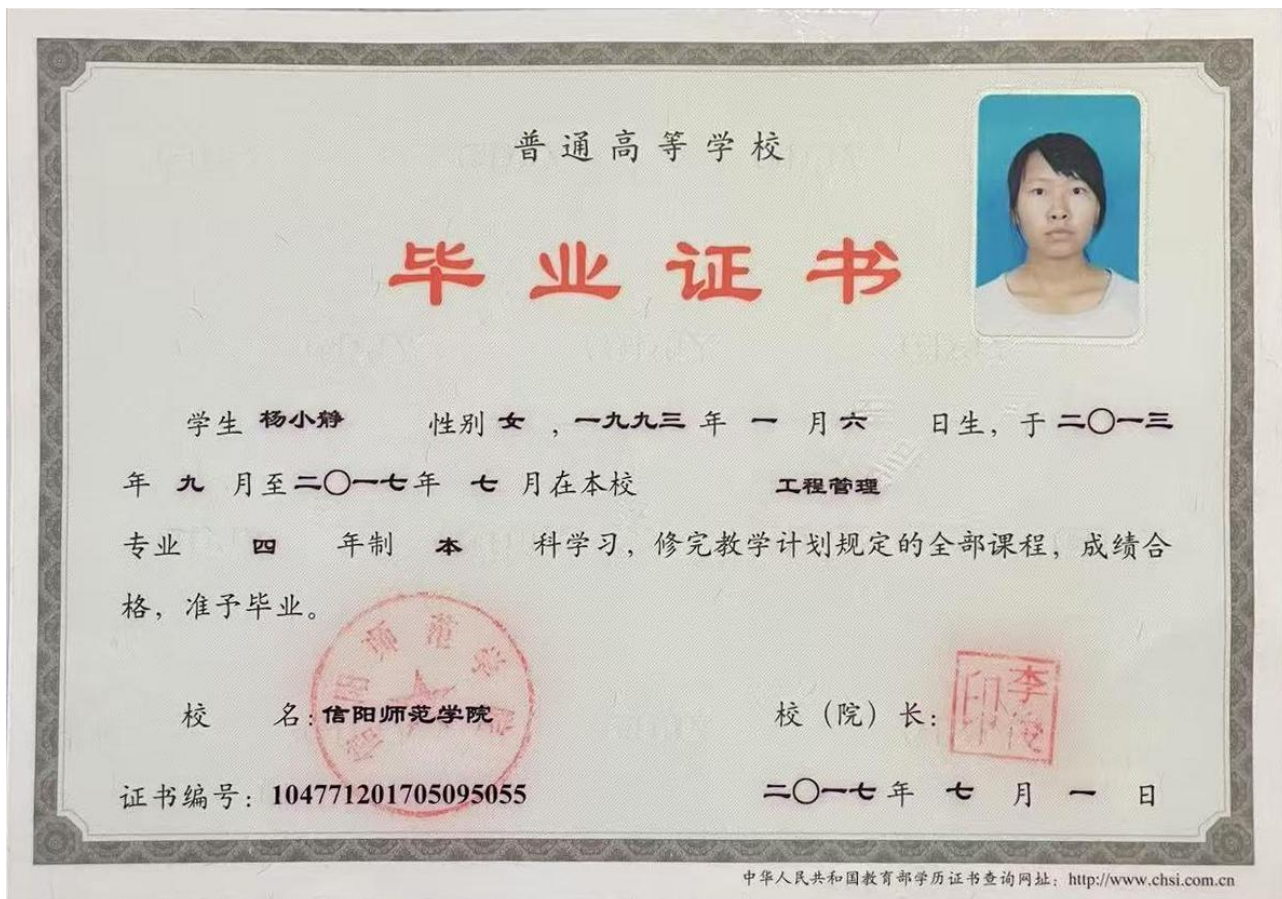 普通高等学校
毕业证书
学生 杨小静 性别 女 ，一九九三 年 一 月 六 日生，于 二〇一三
年 九 月至 二〇一七 年 七 月在本校 工程管理
专业 四 年制 本 科学习，修完教学计划规定的全部课程，成绩合
格，准予毕业。
校 名：信阳师范学院 校（院）长：
证书编号：104771201705095055 二〇一七 年 七 月 一 日
中华人民共和国教育部学历证书查询网址：http://www.chsi.com.cn